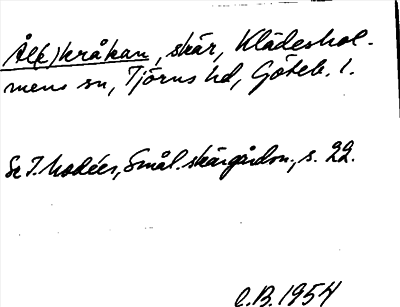 Ål(k)kråkan, skär, Klädeshol-
mens sn, Tjörns hd, Göteb. l.
Se T. Modéer, Smål. skärgårdsn., s. 22.
C.B. 1954